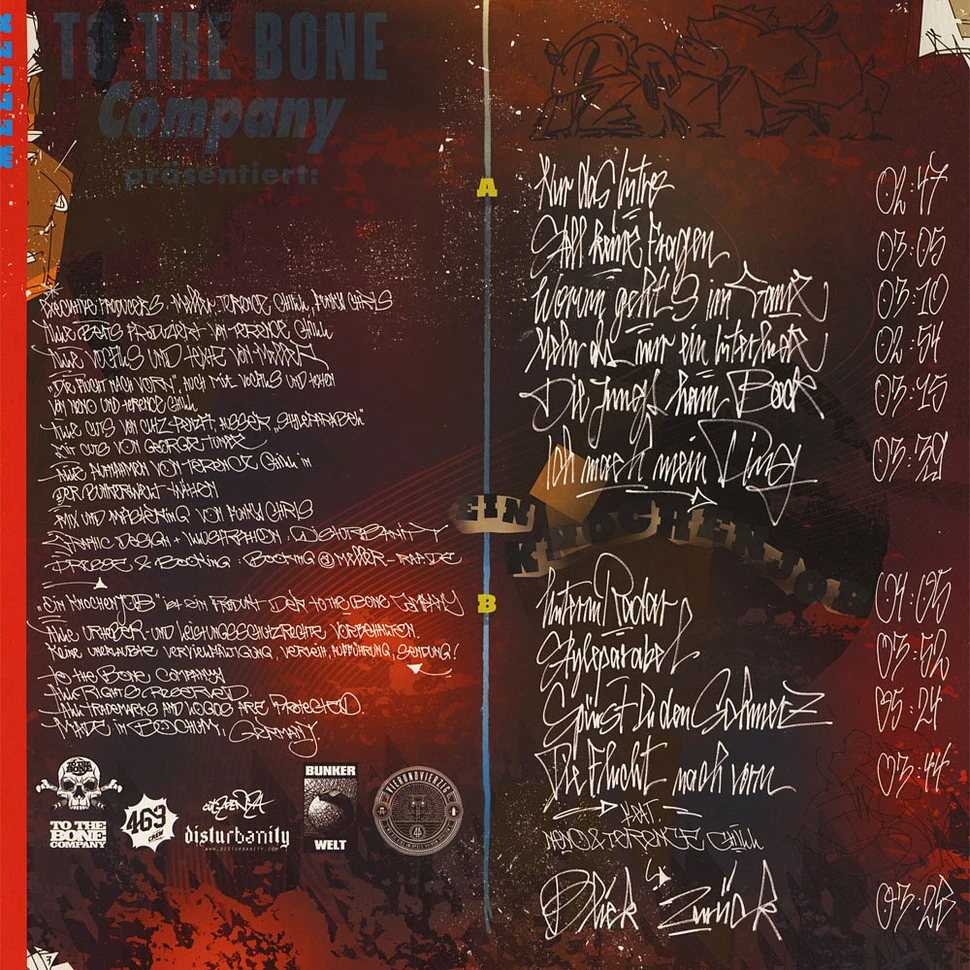 TO THE BONE
Company
präsentiert:
Executive Producers: Meller, Terence Chill, Funky Chris
Alle Beats produziert von Terence Chill
Alle Vocals und Texte von Meller
"Die Flucht nach vorn" auch mit Vocals und Texten
von Nono und Terence Chill
Alle Cuts von Cutz-Penzt, ausser "Styleparabel"
mit Cuts von George
Alle Aufnahmen von Terence Chill in
der Bunkerwelt
Mix und Mastering von Funky Chris
Graphic Design + Illustration: Disturbanity
& Booking: Booking@Meller-Rap.de
"Ein Knochenjob" ist ein Produkt der To The Bone Company
Alle Urheber- und Leistungsschutzrechte vorbehalten.
Keine unerlaubte Vervielfältigung, Verleih, Aufführung, Sendung!
To the Bone Company
All Rights Reserved
All Trademarks and Logos are Protected.
Made in Bochum, Germany.
TO THE BONE
COMPANY
469
CREW
disturbanity
WWW.DISTURBANITY.COM
BUNKER
WELT
A
Nur das Intro 02:47
Stell keine Fragen 03:05
Worum geht's im Game 03:10
Mehr als nur ein Hinterhof 02:54
Die Jungs ham Bock 03:15
Ich mach mein Ding 03:39
EIN
KNOCHENJOB
B
Unterm Radar
Styleparabel 03:52
Spürst Du den Schmerz 05:24
Die Flucht nach vorn 03:44
feat
Nono & Terence Chill
Blick Zurück 03:23